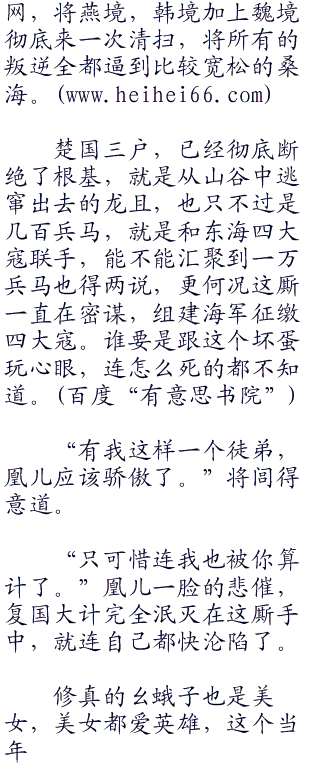 网，将燕境，韩境加上魏境
彻底来一次清扫，将所有的
叛逆全都逼到比较宽松的桑
海。(www.heihei66.com)
楚国三户，已经彻底断
绝了根基，就是从山谷中逃
窜出去的龙且，也只不过是
几百兵马，就是和东海四大
寇联手，能不能汇聚到一万
兵马也得两说，更何况这厮
一直在密谋，组建海军征缴
四大寇。谁要是跟这个坏蛋
玩心眼，连怎么死的都不知
道。(百度“有意思书院”)
“有我这样一个徒弟，
凰儿应该骄傲了。”将闾得
意道。
“只可惜连我也被你算
计了。”凰儿一脸的悲催，
复国大计完全泯灭在这厮手
中，就连自己都快沦陷了。
修真的幺蛾子也是美
女，美女都爱英雄，这个当
年